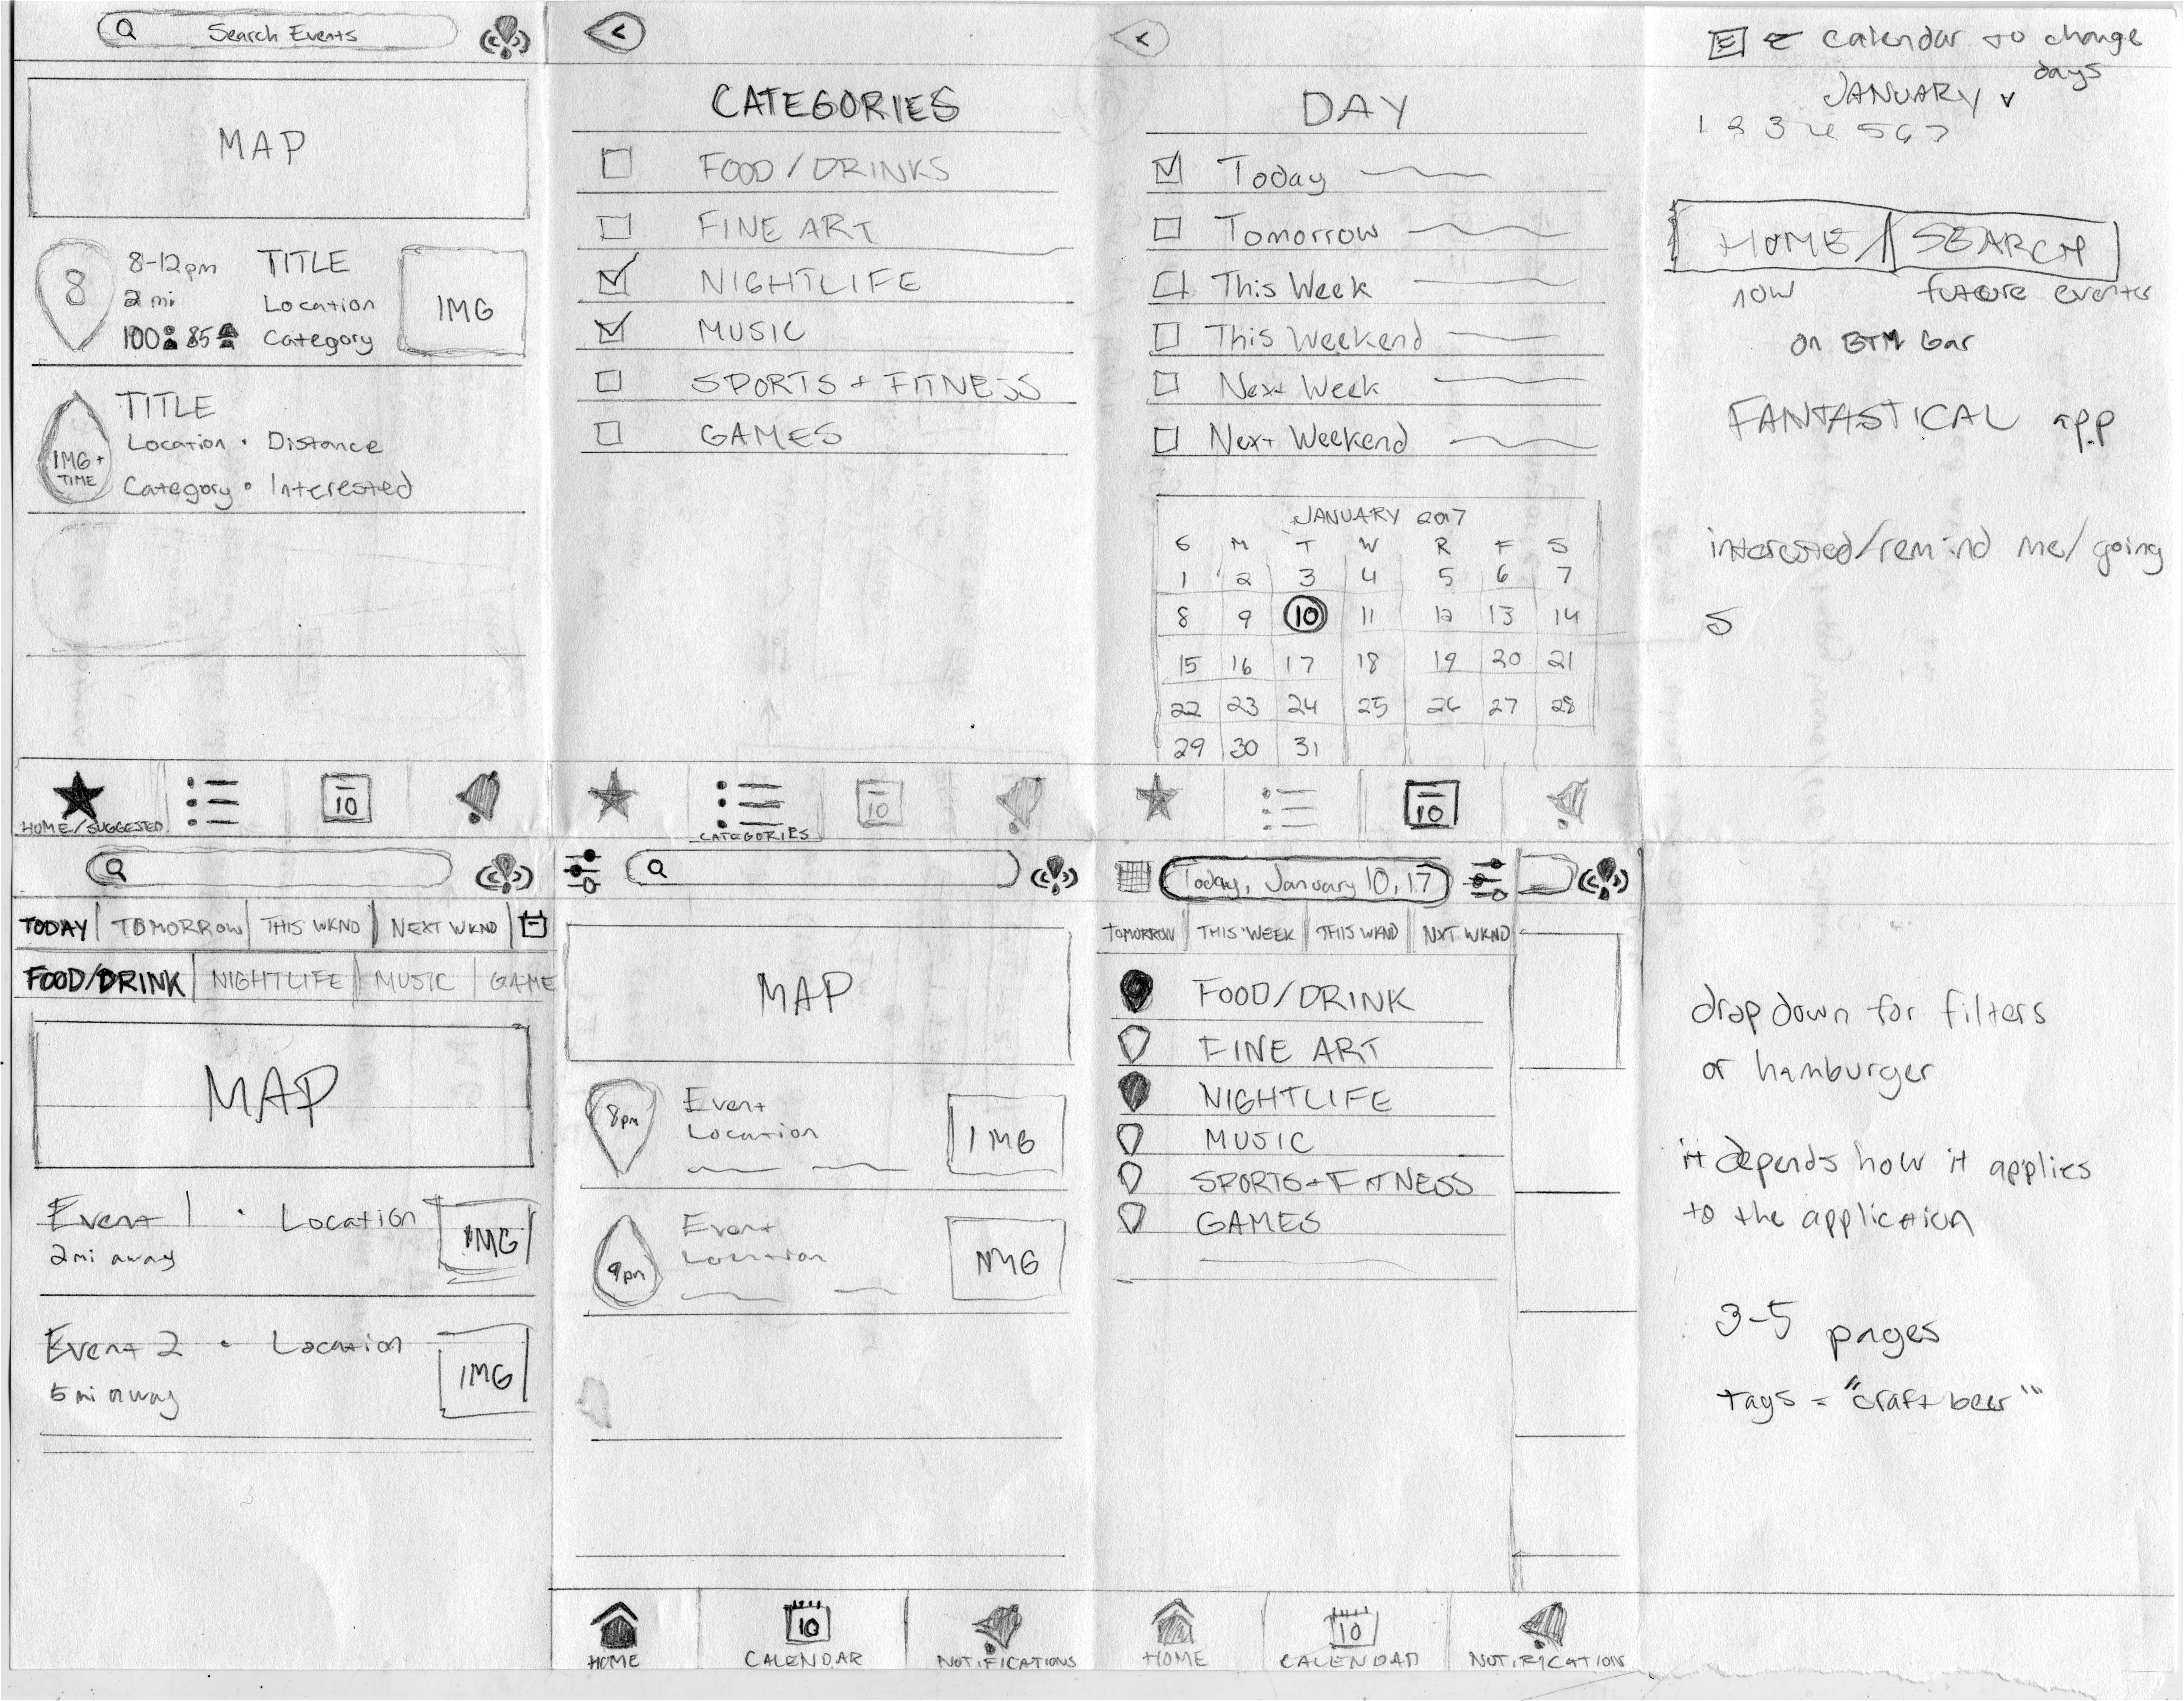 Search Events
MAP
8
8-12pm
2 mi
100 85
TITLE
Location
Category
IMG
IMG + TIME
TITLE
Location · Distance
Category · Interested
HOME/SUGGESTED
10
<
CATEGORIES
FOOD / DRINKS
FINE ART
NIGHTLIFE
MUSIC
SPORTS + FITNESS
GAMES
CATEGORIES
10
<
DAY
Today
Tomorrow
This Week
This Weekend
Next Week
Next Weekend
JANUARY 2017
S M T W R F S
1 2 3 4 5 6 7
8 9 10 11 12 13 14
15 16 17 18 19 20 21
22 23 24 25 26 27 28
29 30 31
10
calendar to change
days
JANUARY v
1 2 3 4 5 6 7
HOME / SEARCH
now future events
on BTM bar
FANTASTICAL app
interested/remind me/going
5
TODAY | TOMORROW | THIS WKND | NEXT WKND
FOOD/DRINK | NIGHTLIFE | MUSIC | GAME
MAP
Event 1 · Location
2mi away
IMG
Event 2 · Location
5 mi away
IMG
MAP
8pm
Event
Location
IMG
9pm
Event
Location
IMG
HOME
10
CALENDAR
NOTIFICATIONS
Today, January 10, 17
TOMORROW | THIS WEEK | THIS WKND | NXT WKND
FOOD/DRINK
FINE ART
NIGHTLIFE
MUSIC
SPORTS+FITNESS
GAMES
HOME
10
CALENDAR
NOTIFICATIONS
drop down for filters
or hamburger
it depends how it applies
to the application
3-5 pages
tags = "craft beer"